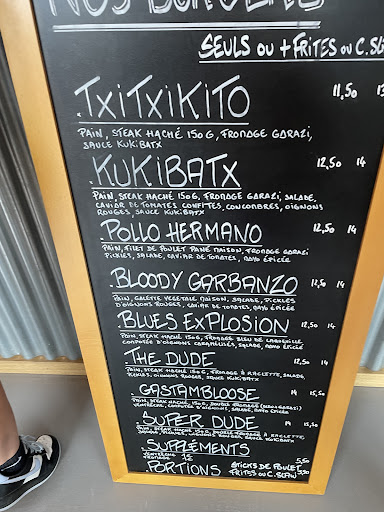 NOS BURGERS
SEULS OU + FRITES OU C.SLAW
TXITXIKITO 11,50 13
PAIN, STEAK HACHÉ 150G, FROMAGE GARAZI,
SAUCE KUKIBATX
KUKIBATX 12,50 14
PAIN, STEAK HACHÉ 150G, FROMAGE GARAZI, SALADE,
CAVIAR DE TOMATES CONFITES, CONCOMBRES, OIGNONS
ROUGES SAUCE KUKIBATX
POLLO HERMANO 12,50 14
PAIN, FILET DE POULET PANÉ MAISON, FROMAGE GARAZI
PICKLES, SALADE, CAVIAR DE TOMATES, MAYO ÉPICÉE
BLOODY GARBANZO 12,50 14
PAIN, GALETTE VEGETALE MAISON, SALADE, PICKLES
D'OIGNONS ROUGES, CAVIAR DE TOMATES, MAYO ÉPICÉE
BLUES EXPLOSION 12,50 14
PAIN, STEAK HACHÉ 150G, FROMAGE BLEU DE
COMPOTÉE D'OIGNONS CARAMELISÉS, SALADE, MAYO ÉPICÉE
THE DUDE 12,50 14
PAIN, STEAK HACHÉ 150G, FROMAGE À RACLETTE, SALADE,
PICKLES, OIGNONS ROUGES, SAUCE KUKIBATX
GASTAMBLOOSE 14 15,50
PAIN, STEAK HACHÉ 150G, DOUBLE FROMAGE
VENTRECHE, COMPOTÉE D'OIGNONS, SALADE, MAYO ÉPICÉE
SUPER DUDE 14 15,50
PAIN, STEAK HACHÉ 150G, DOUBLE FROMAGE À RACLETTE
SALADE, PICKLES, OIGNONS ROUGES, SAUCE KUKIBATX
SUPPLÉMENTS
VENTRECHE
FROMAGE 1€
PORTIONS STICKS DE POULET 5,50
FRITES OU C.SLAW 3,50